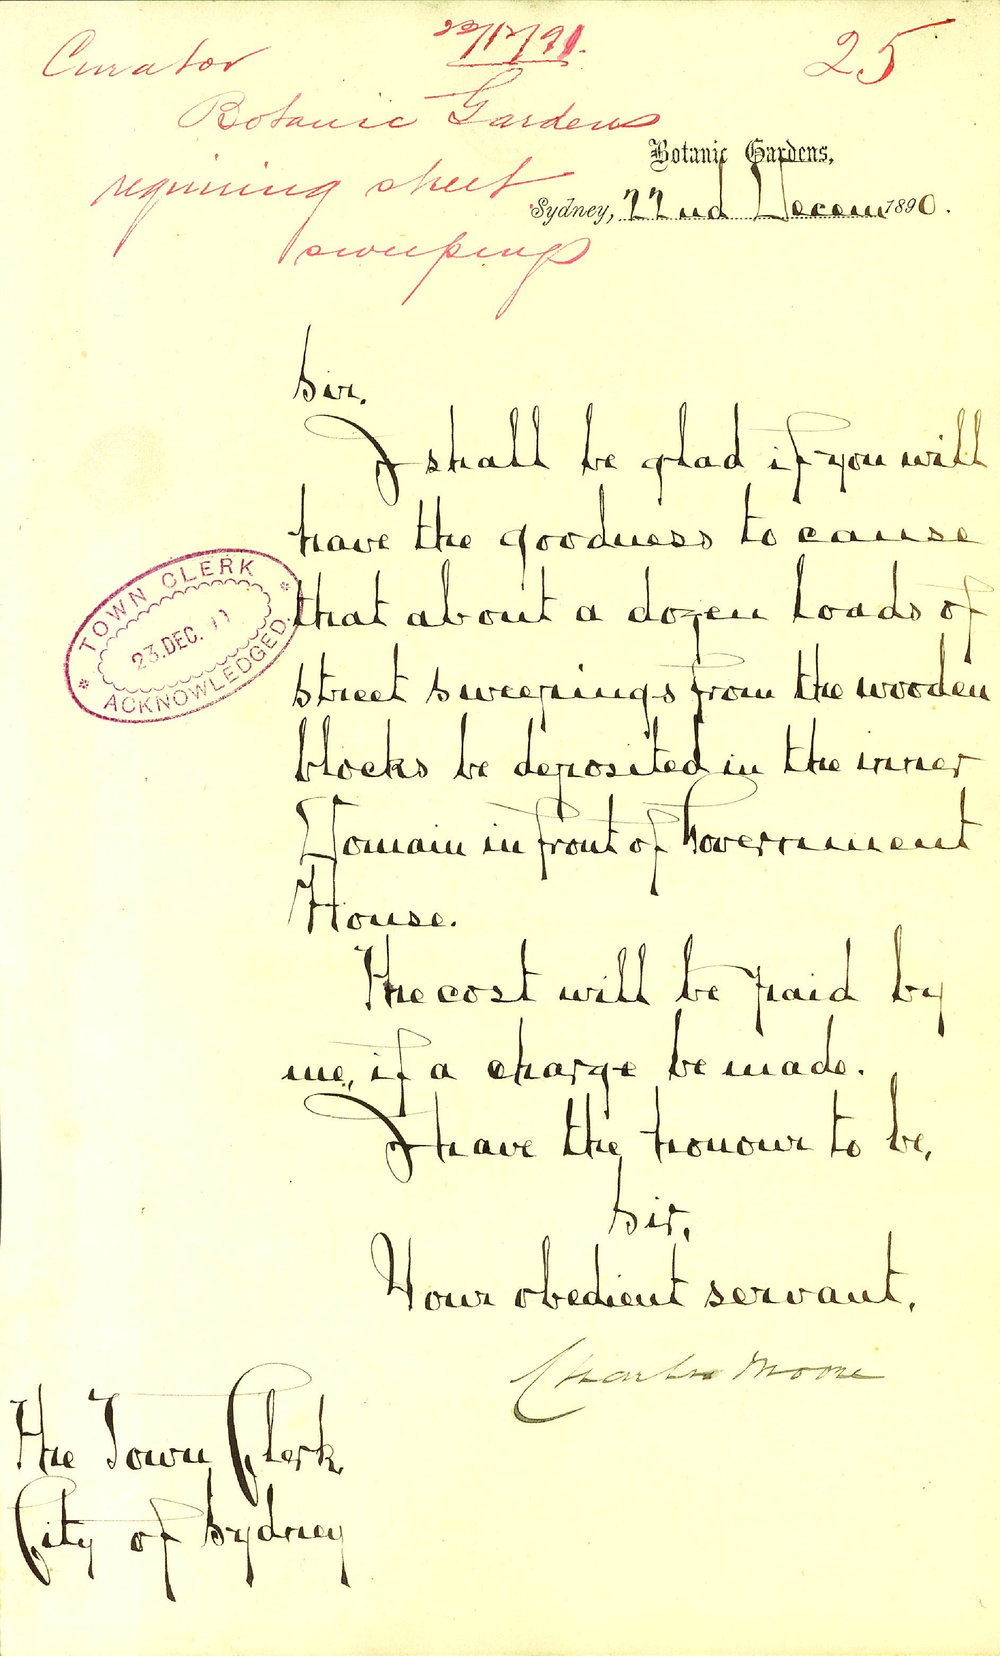 22/12/91.
25
Curator
Botanic Gardens
requiring street
sweepings
Botanic Gardens,
Sydney, 22nd Decem 1890.
Sir.
I shall be glad if you will
have the goodness to cause
that about a dozen loads of
street sweepings from the wooden
blocks be deposited in the inner
Domain in front of Government
House.
The cost will be paid by
me, if a charge be made.
I have the honour to be,
Sir,
Your obedient servant.
Charles Moore
The Town Clerk
City of Sydney
TOWN CLERK
23.DEC.
ACKNOWLEDGED.